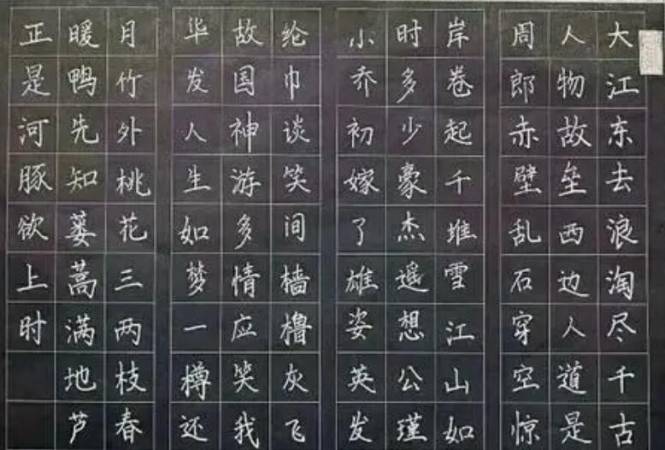 大江东去浪淘尽千古
人物故垒西边人道是
周郎赤壁乱石穿空惊
岸卷起千堆雪江山如
时多少豪杰遥想公瑾
小乔初嫁了雄姿英发
纶巾谈笑间樯橹灰飞
故国神游多情应笑我
华发人生如梦一樽还
月竹外桃花三两枝春
暖鸭先知蒌蒿满地芦
正是河豚欲上时